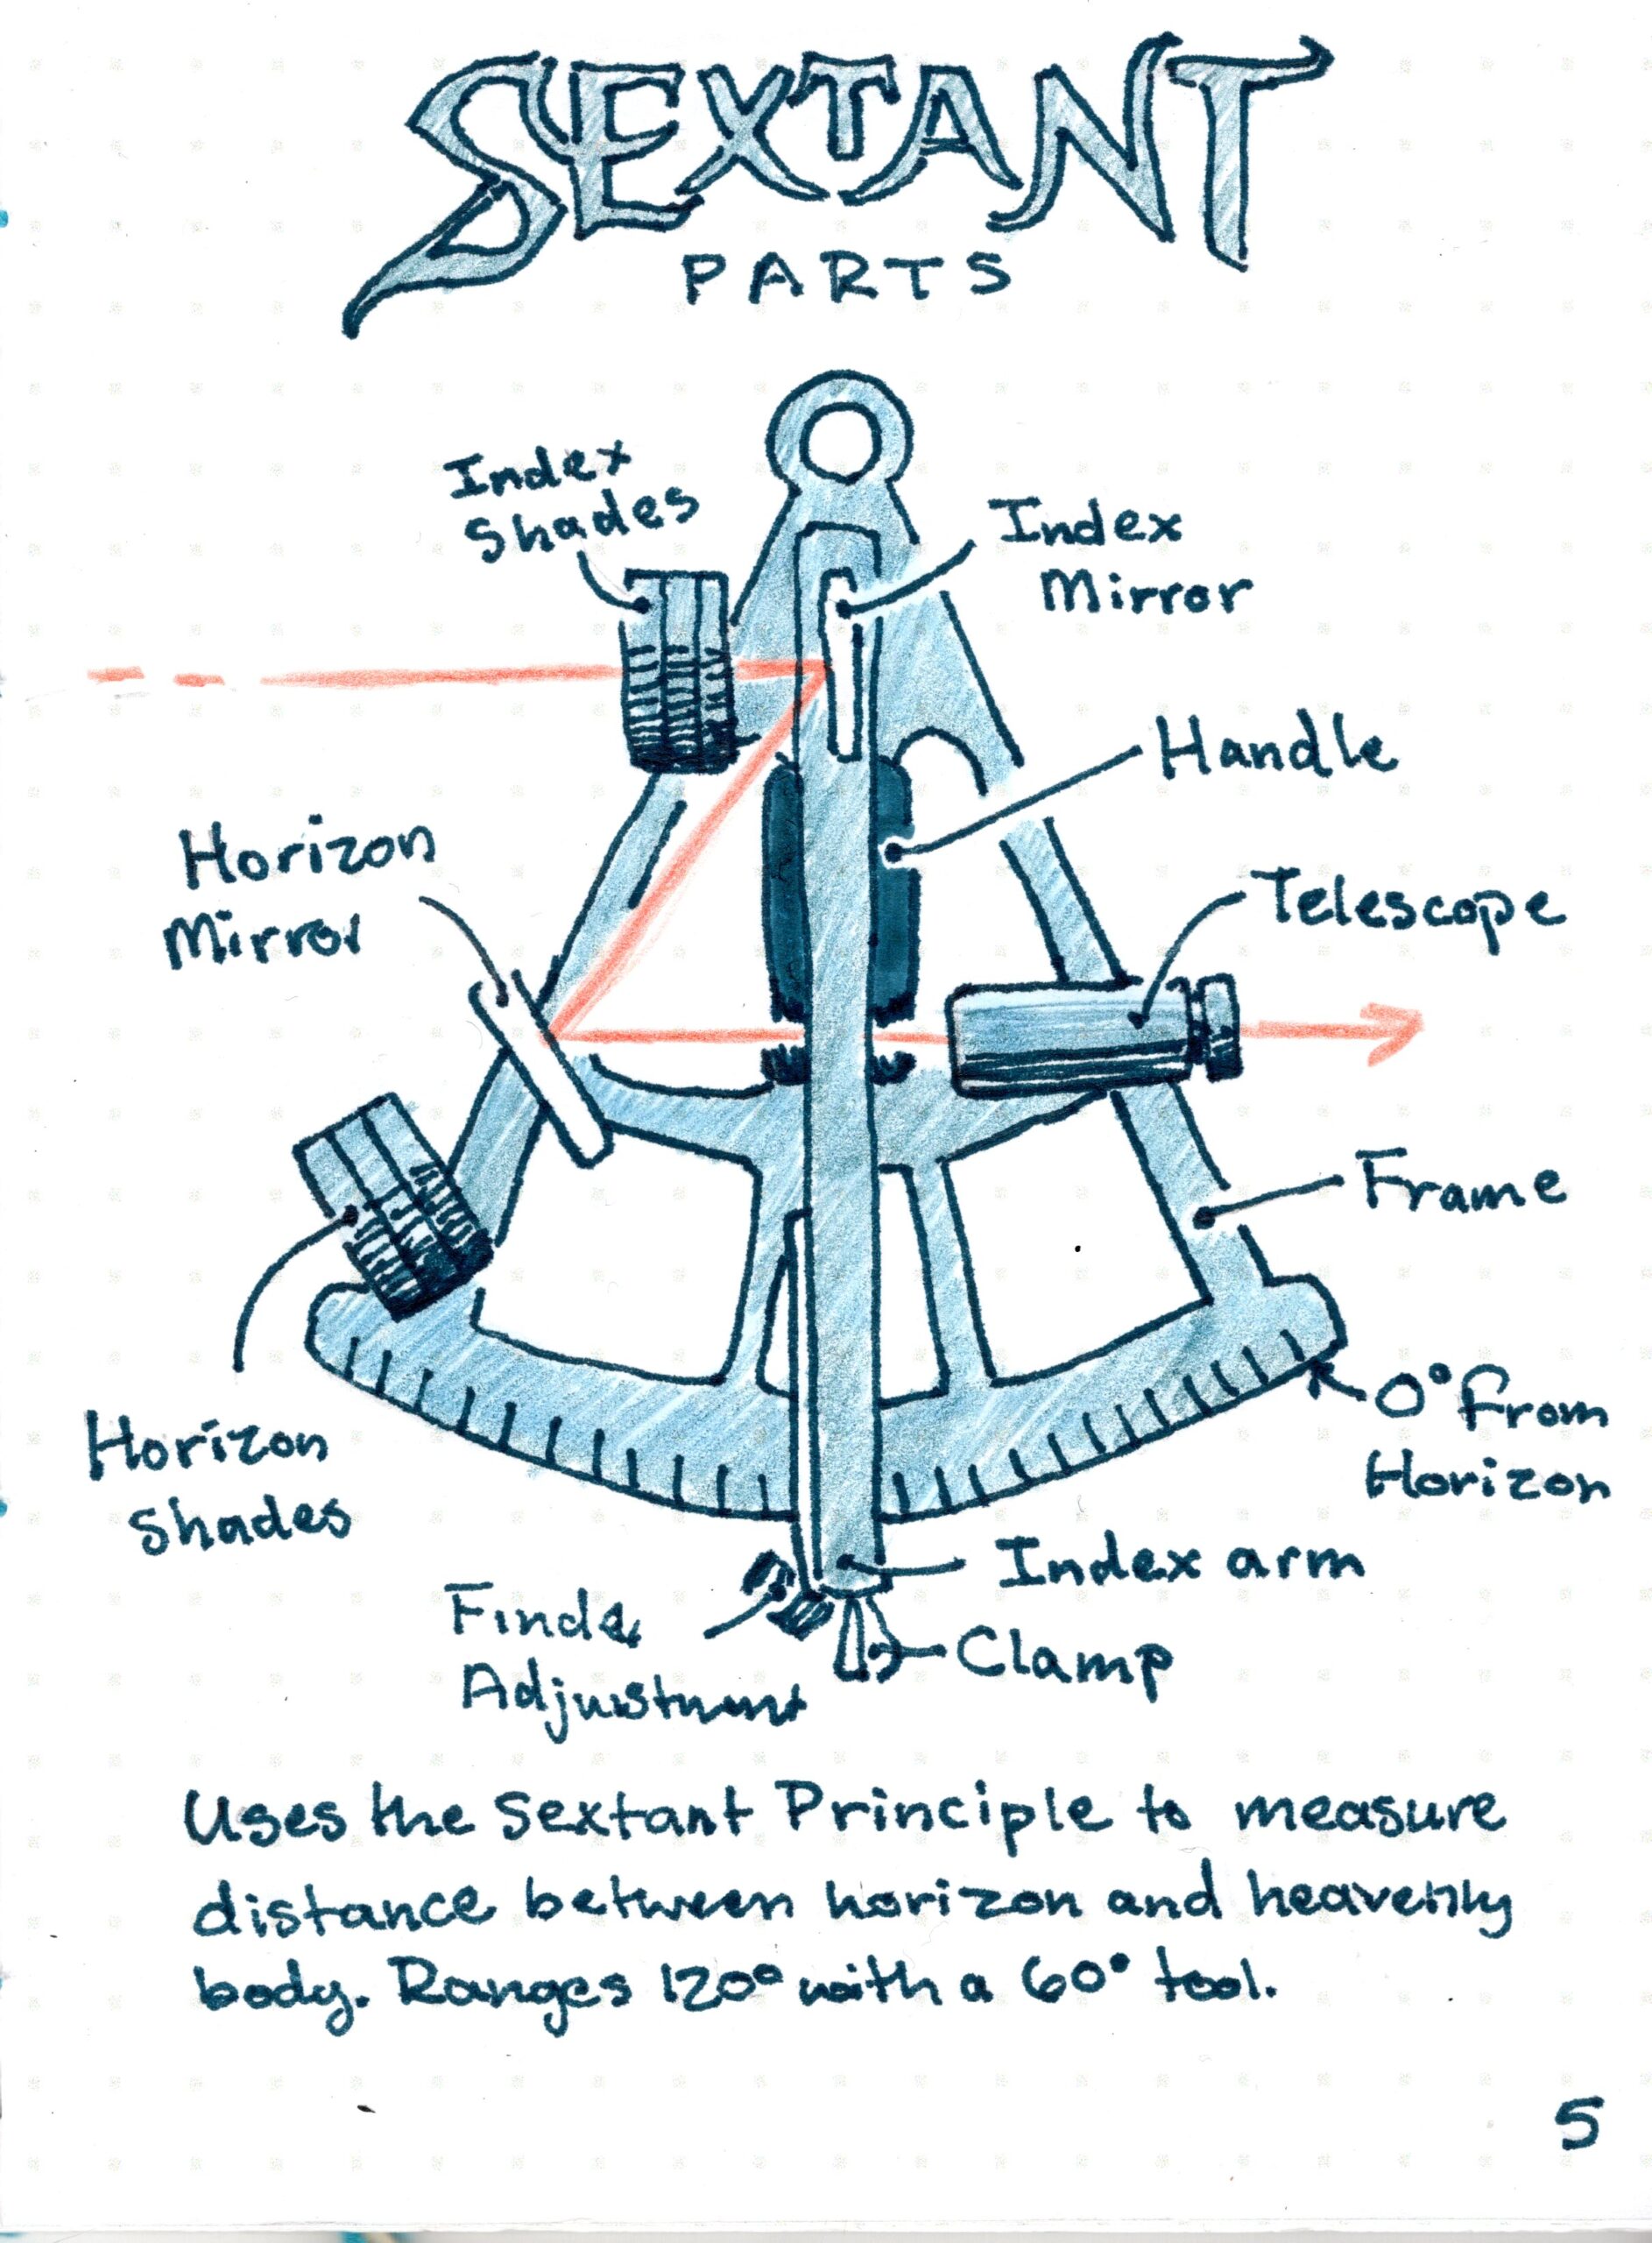 SEXTANT
PARTS
Index
Shades
Index
Mirror
Handle
Horizon
Mirror
Telescope
Frame
0° from
Horizon
Horizon
Shades
Index arm
Finder
Adjustment
Clamp
Uses the Sextant Principle to measure
distance between horizon and heavenly
body. Ranges 120° with a 60° tool.
5